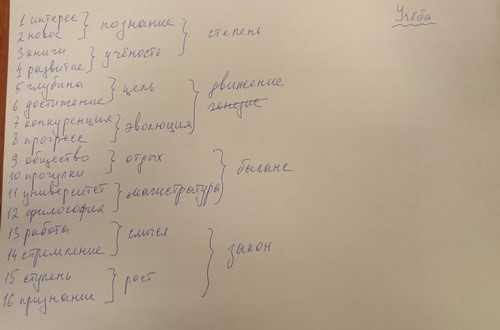 Учёба
1 интерес
2 новое
познание
3 книги
4 развитие
учёность
степень
5 глубина
6 достижение
цель
7 конкуренция
8 прогресс
эволюция
движение
9 общество
10 прогулки
отдых
11 университет
12 философия
магистратура
баланс
13 работа
14 стремление
смысл
15 ступень
16 признание
рост
закон